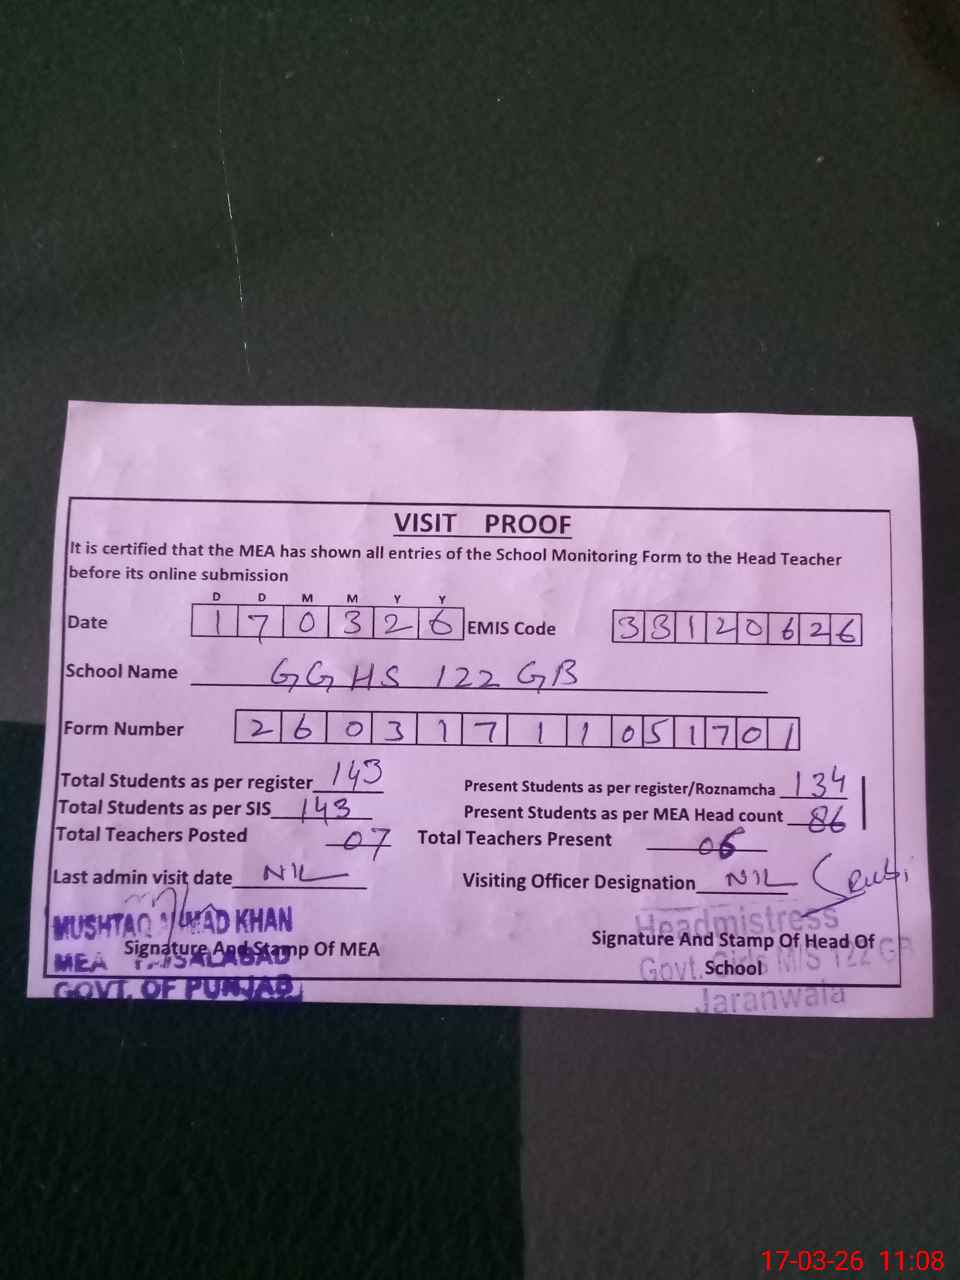 VISIT PROOF
It is certified that the MEA has shown all entries of the School Monitoring Form to the Head Teacher
before its online submission
D D M M Y Y
Date 1 7 0 3 2 6 EMIS Code 3 3 1 2 0 6 2 6
School Name GGHS 122 GB
Form Number 2 6 0 3 1 7 1 1 0 5 1 7 0 1
Total Students as per register 143 Present Students as per register/Roznamcha 134
Total Students as per SIS 143 Present Students as per MEA Head count 86
Total Teachers Posted 07 Total Teachers Present 06
Last admin visit date NIL Visiting Officer Designation NIL
MUSHTAQ AHMAD KHAN
Signature And Stamp Of MEA
MEA FAISALABAD
GOVT. OF PUNJAB
Headmistress
Signature And Stamp Of Head Of
School
Govt. Girls M/S 122 GB
Jaranwala
17-03-26 11:08